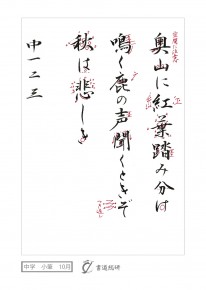 奥山に紅葉踏み分け
鳴く鹿の声聞くときぞ
秋は悲しき
中一二三
中学 小筆 10月
書道総研